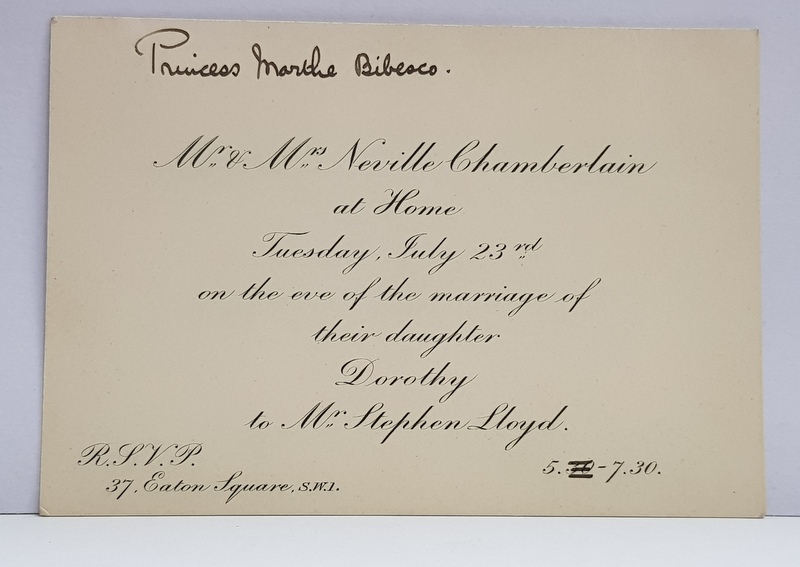 Princess Marthe Bibesco.
Mr. & Mrs. Neville Chamberlain
at Home
Tuesday, July 23rd
on the eve of the marriage of
their daughter
Dorothy
to Mr. Stephen Lloyd.
R.S.V.P.
37, Eaton Square, S.W.1.
5. - 7.30.